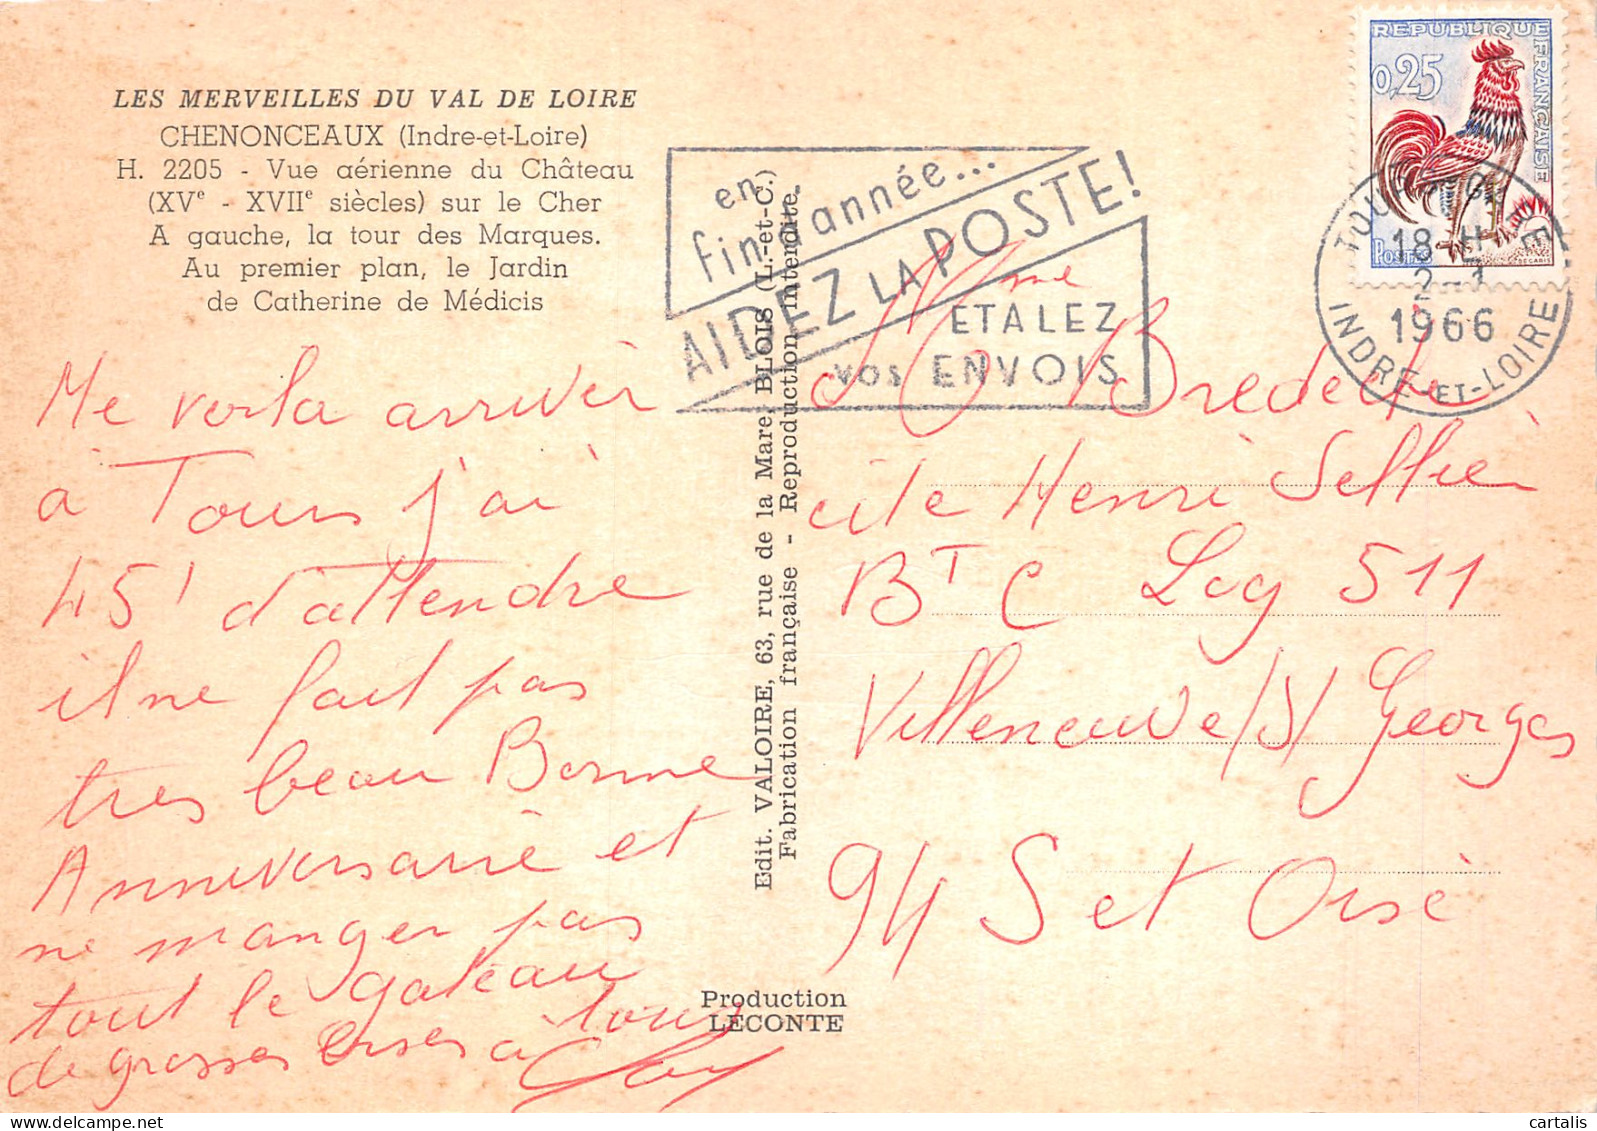 LES MERVEILLES DU VAL DE LOIRE
CHENONCEAUX (Indre-et-Loire)
H. 2205 - Vue aérienne du Château
(XVe - XVIIe siècles) sur le Cher
A gauche, la tour des Marques.
Au premier plan, le Jardin
de Catherine de Médicis
en
fin d'année...
AIDEZ LA POSTE!
ETALEZ
VOS ENVOIS
REPUBLIQUE FRANÇAISE
0,25
POSTES
DECARIS
18 H
2 - 1
1966
INDRE-ET-LOIRE
Me voila arriver
à Tours j'ai
45' d'attendre
il ne fait pas
tres beau Bonne
Anniversaire et
ne manger pas
tout le gateau
de grosses bises a tous
Edit. VALOIRE, 63, rue de la Mare, BLOIS (L.-et-C.)
Fabrication française - Reproduction interdite.
Mme
Bredeche
cite Henri Sellier
BT C Log 511
Villeneuve/S/Georges
94 S et Oise
Production
LECONTE
cartalis